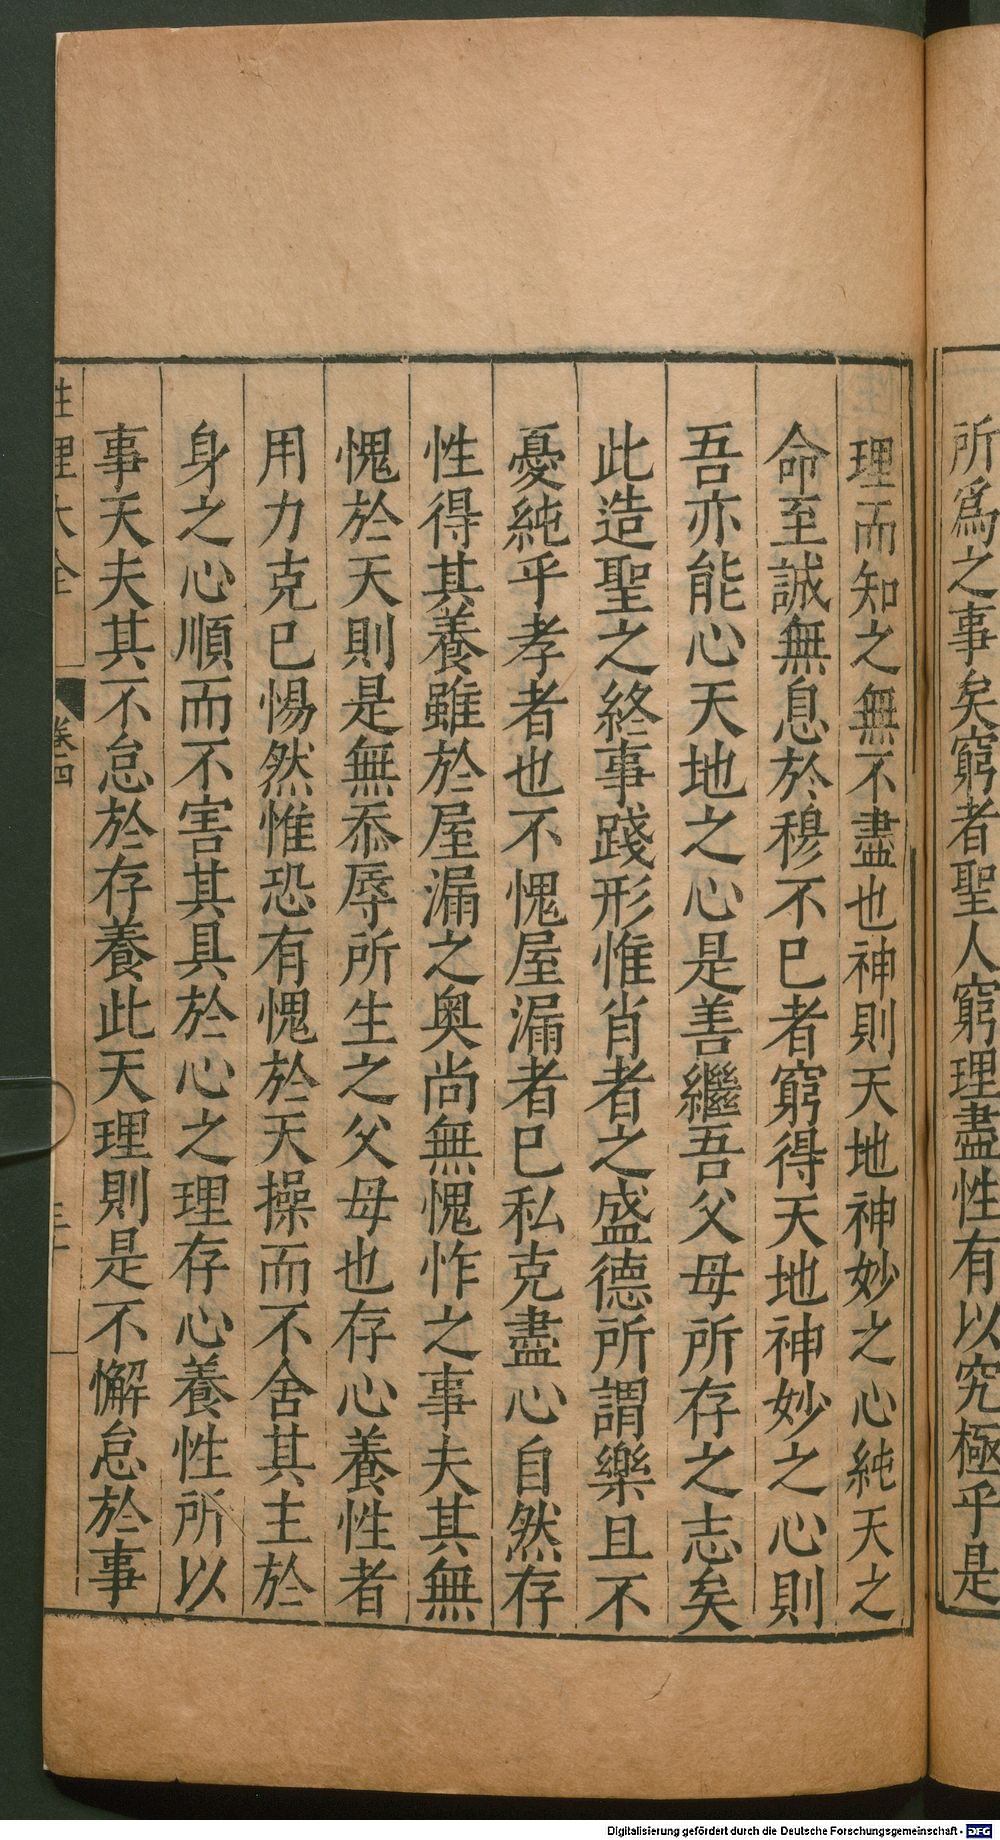 所爲之事矣窮者聖人窮理盡性有以究極乎是
理而知之無不盡也神則天地神妙之心純天之
命至誠無息於穆不已者窮得天地神妙之心則
吾亦能心天地之心是善繼吾父母所存之志矣
此造聖之終事踐形惟肖者之盛德所謂樂且不
憂純乎孝者也不愧屋漏者已私克盡心自然存
性得其養雖於屋漏之奧尚無愧怍之事夫其無
愧於天則是無忝辱所生之父母也存心養性者
用力克已惕然惟恐有愧於天操而不舍其主於
身之心順而不害其具於心之理存心養性所以
事天夫其不怠於存養此天理則是不懈怠於事
性理大全
卷四
Digitalisierung gefördert durch die Deutsche Forschungsgemeinschaft - DFG